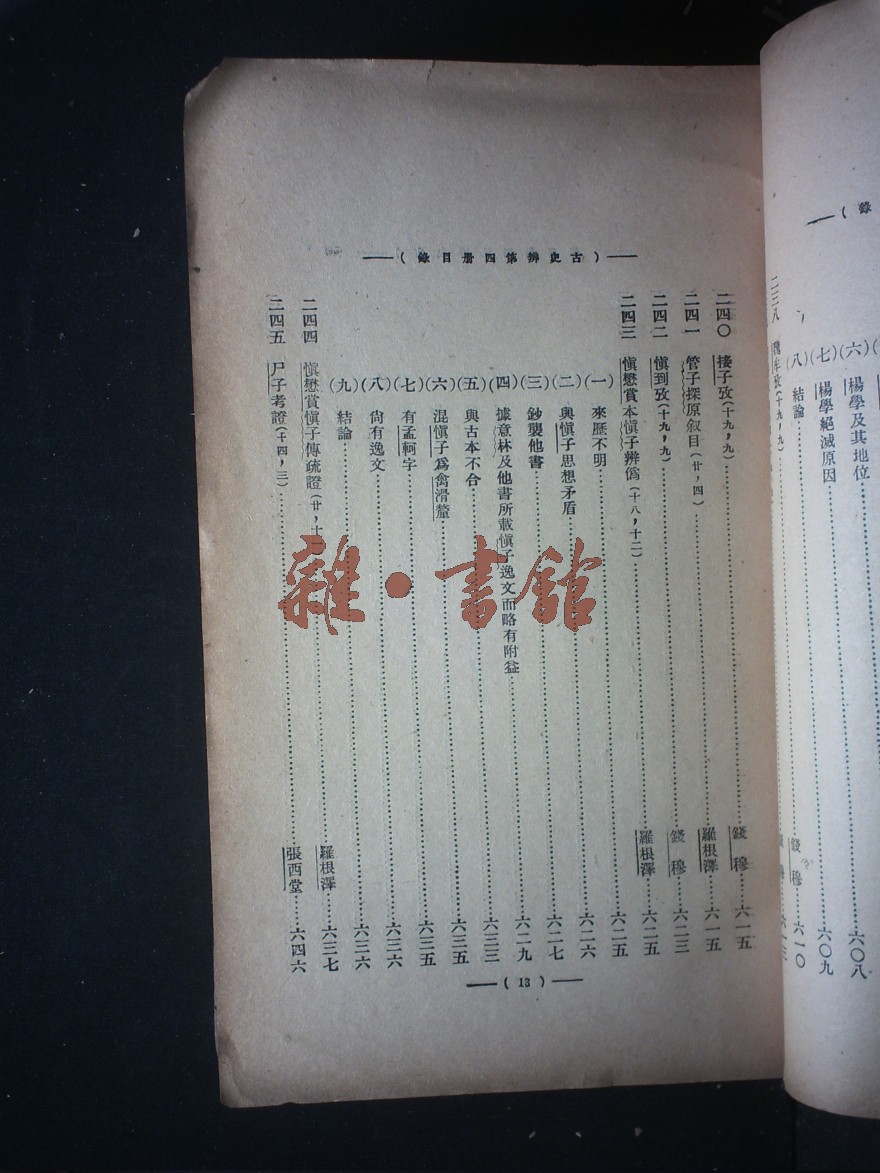 （古史辨第四册目錄）
二四〇 接子攷（十九，九）錢穆 六一五
二四一 管子探原叙目（廿，四）羅根澤 六一五
二四二 愼到攷（十九，九）錢穆 六二三
二四三 愼懋賞本愼子辨僞（十八，十二）羅根澤 六二五
（一）來歷不明 六二五
（二）與愼子思想矛盾 六二六
（三）鈔襲他書 六二七
（四）據意林及他書所載愼子逸文而略有附益 六二九
（五）與古本不合 六三三
（六）混愼子爲禽滑釐 六三五
（七）有孟軻字 六三五
（八）尙有逸文 六三六
（九）結論 六三六
二四四 愼懋賞愼子傳疏證（廿，十 羅根澤 六三七
二四五 尸子考證（十四，三）張西堂 六四六
（13）
錄（
（六）楊學及其地位 六〇八
（七）楊學絕滅原因 六〇九
（八）結論 錢穆 六一〇
二三八
雜·書館